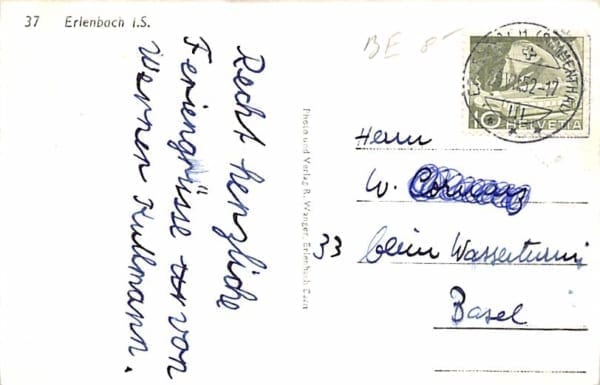 37 Erlenbach i.S.
Recht herzliche
Feriengrüsse
von
Werner Kullmann.
Photo und Verlag R. Wanger, Erlenbach Bern
BE 8-
52-17
10 HELVETIA
Herrn
W.
33 beim Wasserturm
Basel